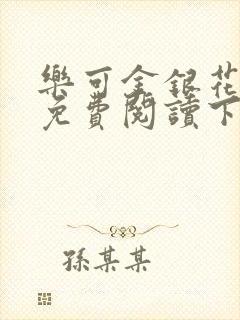 樂可金銀花
免費閱讀下
孫某某